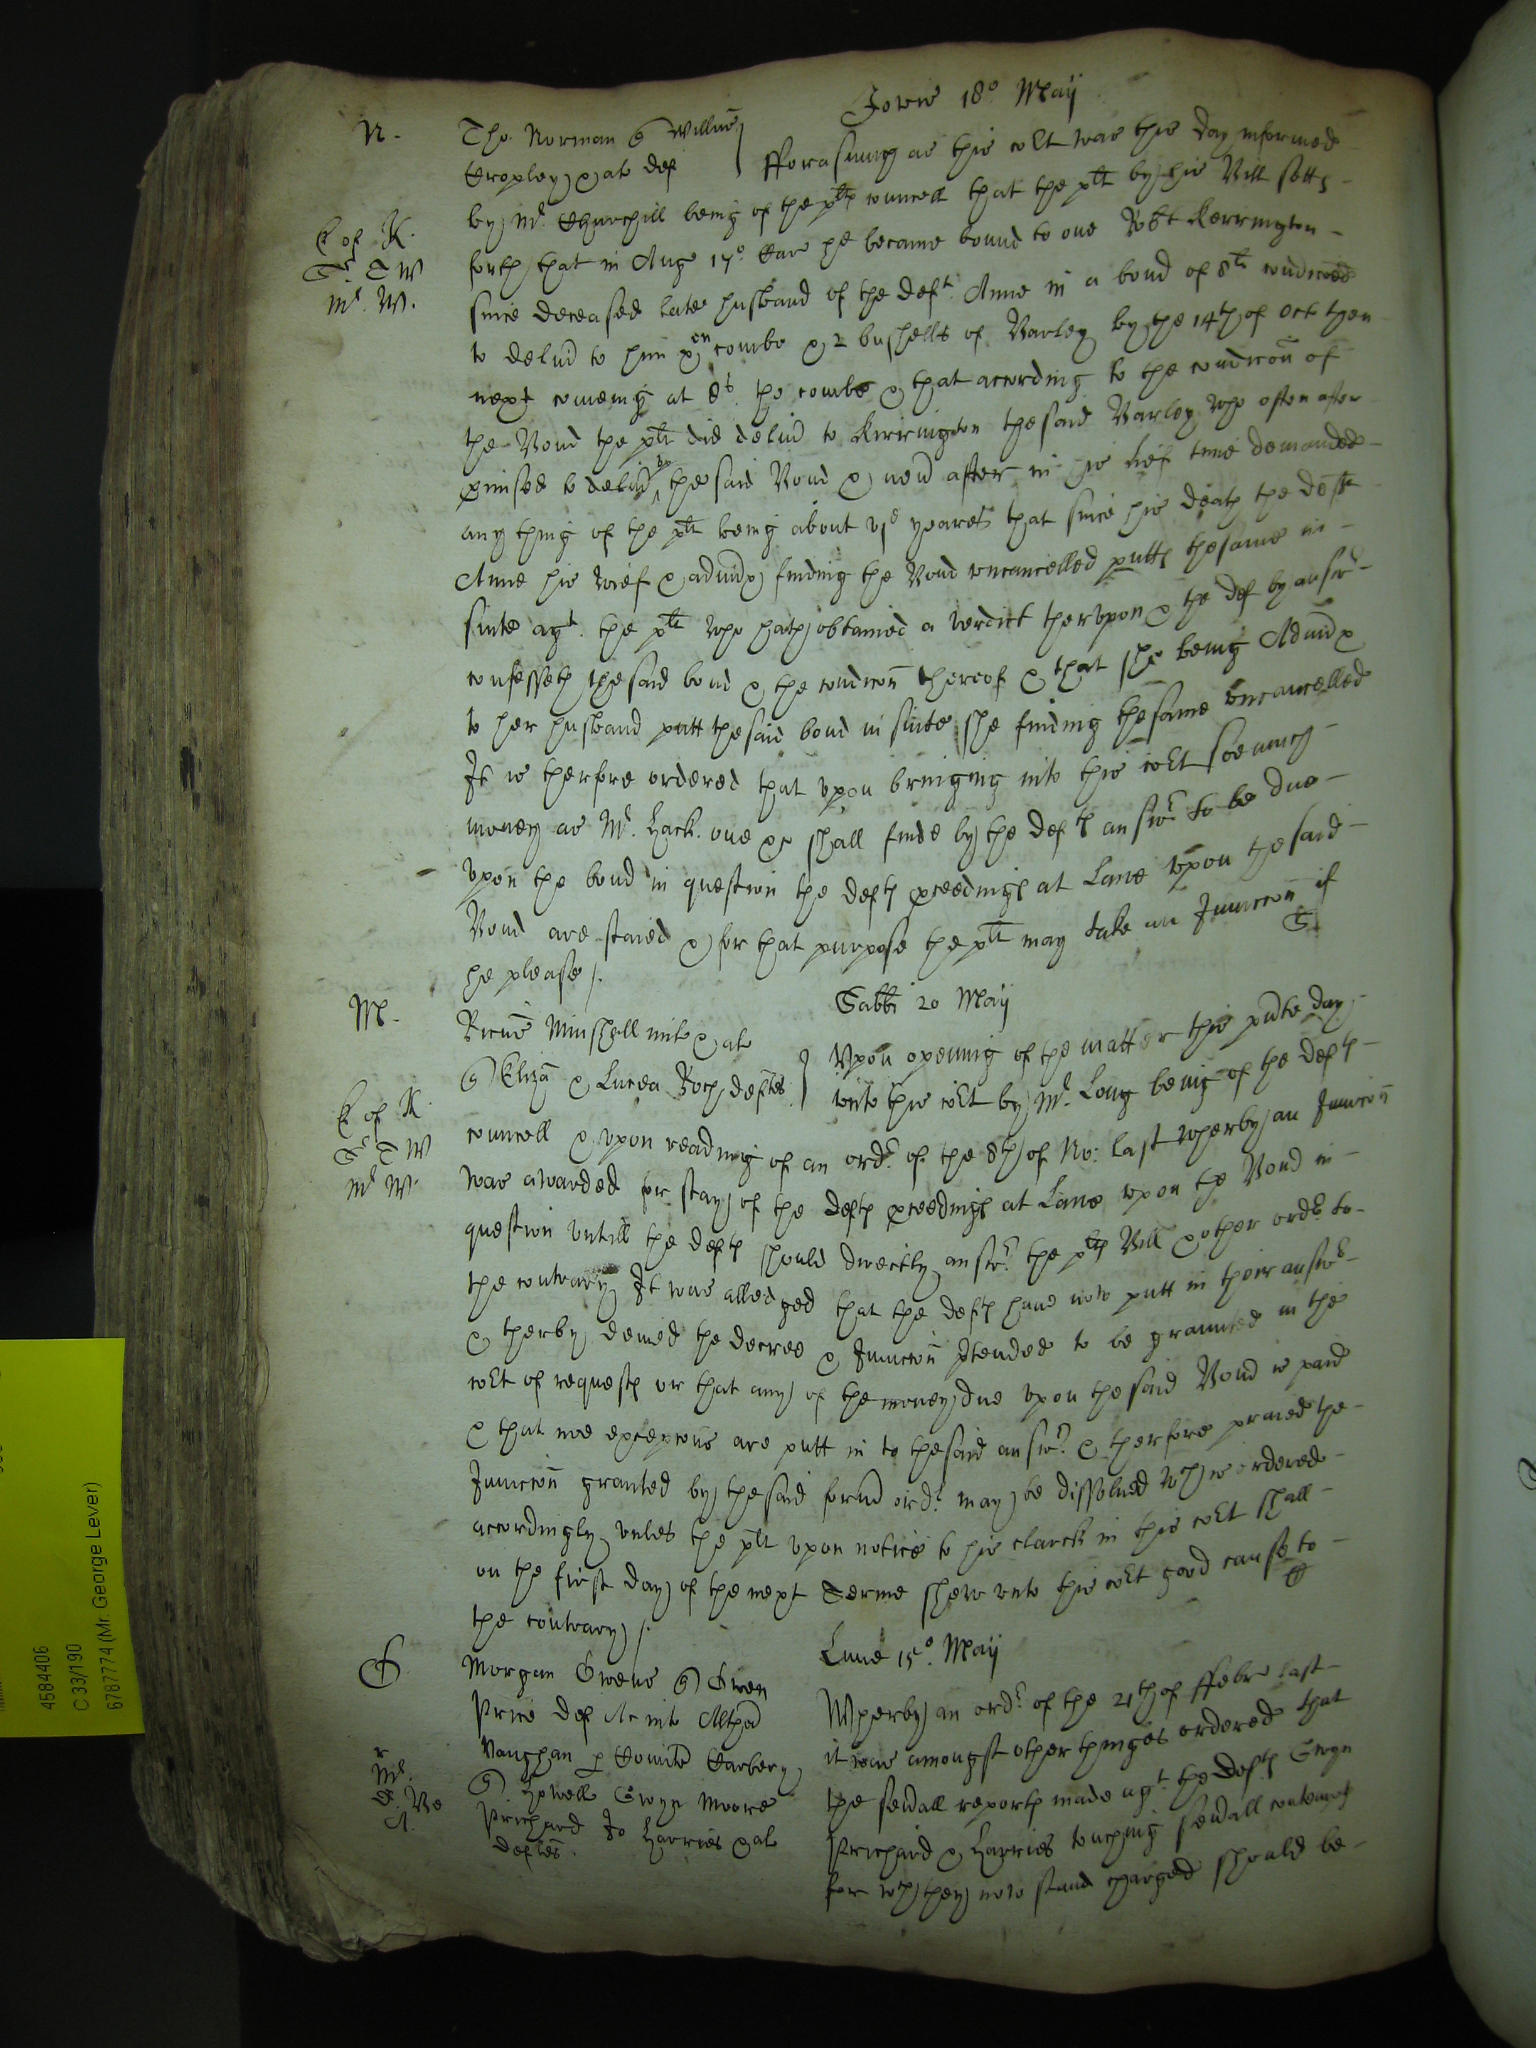 Jovis 18° Maij
N.
Tho Norman
Cropley & al def
fforasmuch as this Co:rt was this day informed
by Mr. Churchill being of the plts councell that the plt by his Bill setts
forth that in Aug 17° Car he became bound to one Robt Kerrington
since deceased late husband of the deft Anne in a bond of 8li
E of K.
Sr T W
Mr. W.
to deliv to him combe & 2 bushells of Barley by the 14th of Oct then
next comeing at 8s. the combe & that according to the condicon of
the Bond the plt did deliv to Kerrington the said Barley who often after
pmised to deliv up the said Bond & nev after in his lief time demanded
any thing of the plt being about yeares that since his death the deft
Anne his wief & admx finding the Bond uncancelled putts the same in
suite agt. the plt who hath obtained a verdict therupon & the def by answ
confesseth the said bond & the condicon thereof & that she being Admx
to her husband putt the said bond in suite she finding the same uncancelled
It is therfore ordered that upon bringing into this Co:rt soe much
money as Mr. Hack. one &c shall finde by the defts answr to be due
upon the bond in question the defts pceedings at Lawe upon the said
Bond are staied & for that purpose the plt may take an Iniuncon if
he please /.
Sabbi 20 Maij
M.
Ricus Minshull milt & al
Eliza & Lucea Roch, deftes
Upon opening of the matter this psnte day
unto this Co:rt by Mr. Long being of the defts
E of K
Sr T W
Mr W.
councell & upon reading of an ordr. of the 8th of No: last wherby an Iniuncon
was awarded for stay of the defts pceedings at Lawe upon the Bond in
question untill the defts should directly answr. the plts Bill & other ordr to
the contrary It was alledged that the defts have now putt in their answr
& therby denied the decree & Iniuncon ptended to be graunted in the
Co:rt of requests or that any of the money due upon the said Bond is paid
& that noe excepcons are putt in to the said answr. & therfore praied the
Iniuncon granted by the said form ordr. may be dissolued wch is ordered
accordingly unles the plt upon notice to his clarck in this Co:rt shall
on the first day of the next Terme shew unto this Co:rt good cause to
the contrary /.
Lune 15°. Maij
G.
Morgan Owens Gwen
Price def Ac
Vaughan p Comite Carbery
Howell Gwyn Moore
Prichard Jo Harries & al
deftes.
Wherby an ordr. of the 21th of ffebr last
it was amongst other thinges ordered that
the seuall reports made agt. the defts Gwyn
Prichard & Harries touching seuall contempts
for wch they now stand charged should be
4584406
C 33/190
6787774 (Mr. George Lever)